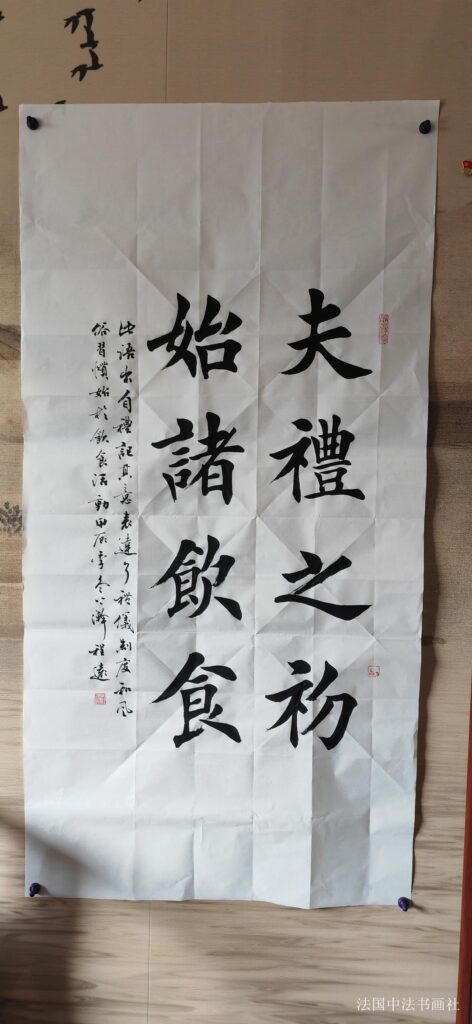 夫禮之初
始諸飲食
此語出自禮記其意表達了禮儀制度和風
俗習慣始於飲食活動甲辰季冬 程遠
法国中法书画社